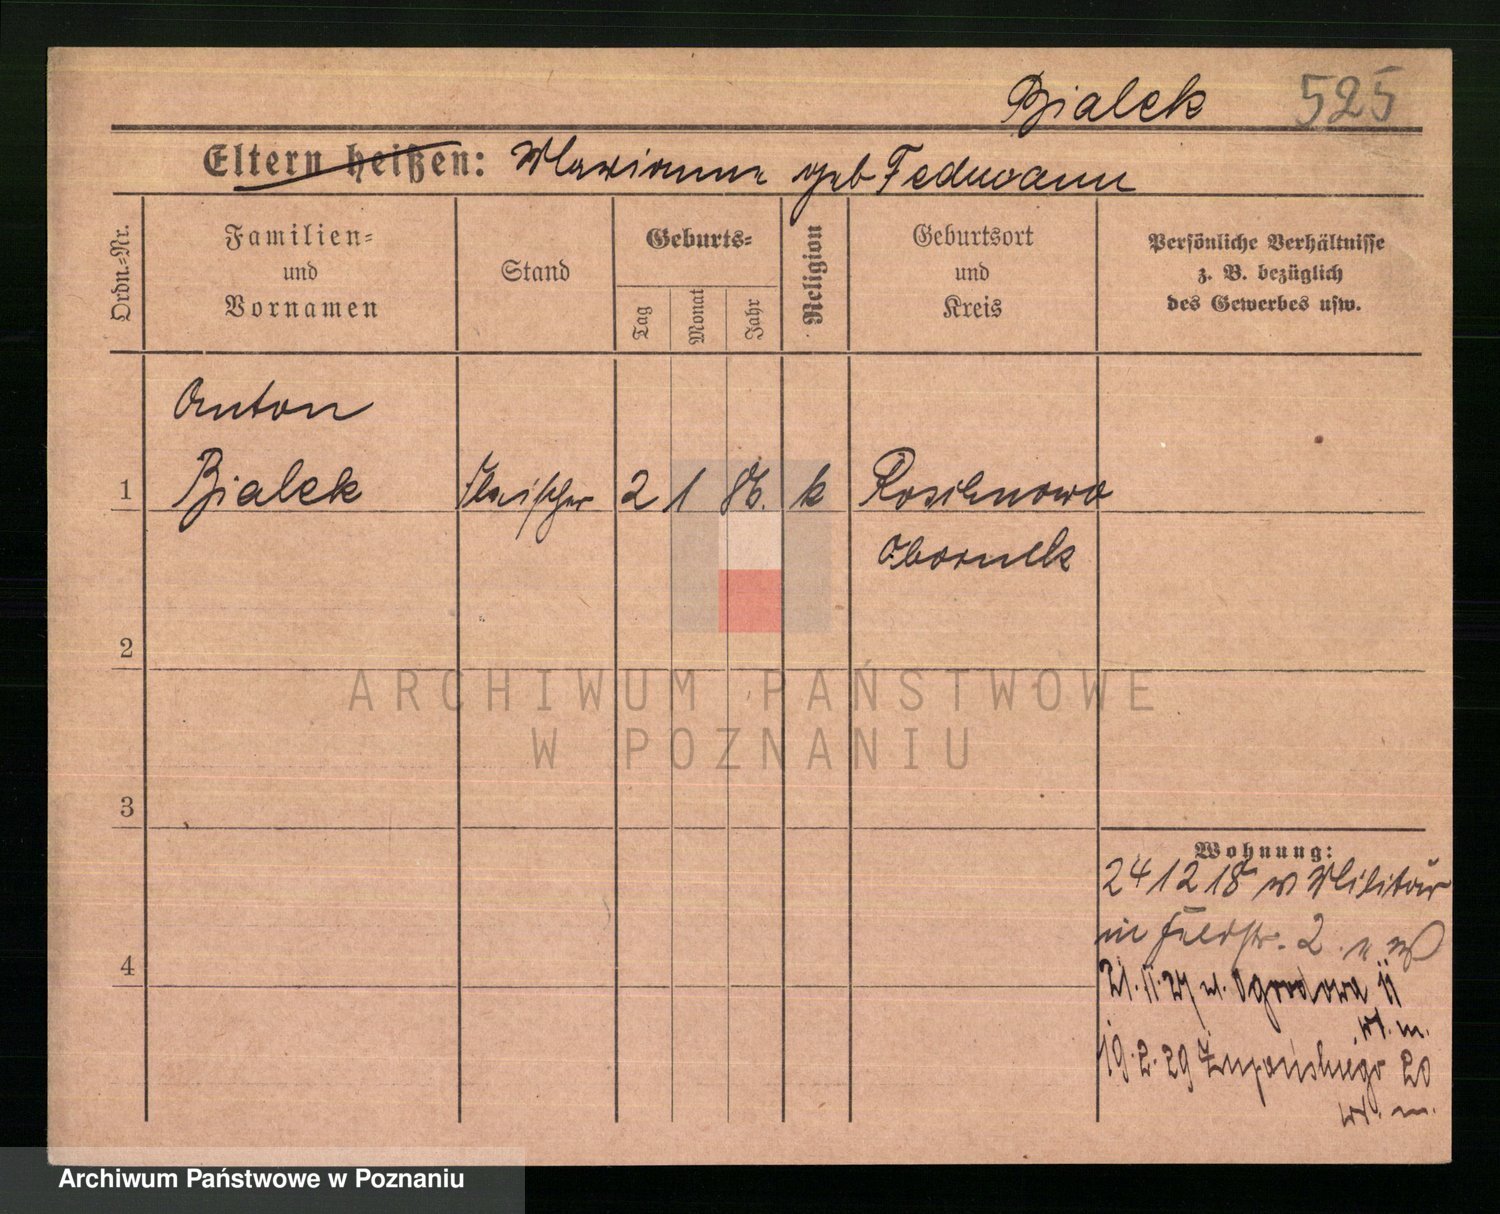 Bialek 525
Eltern heißen: Marianna geb Fedmann
Ordn.-Nr.
Familien-
und
Vornamen
Stand
Geburts-
Tag
Monat
Jahr
Religion
Geburtsort
und
Kreis
Persönliche Verhältnisse
z. B. bezüglich
des Gewerbes usw.
Anton
1 Bialek Fleischer 2 1 86. k Rosihnowo
Obornik
2
ARCHIWUM PAŃSTWOWE
W POZNANIU
3
Wohnung:
24 12 18 v Militär
in Feldstr. 2.
4
21.11.27 Ogrodowa 11
wł. m.
19.2.29 Żupańskiego 20
wł. m.
Archiwum Państwowe w Poznaniu